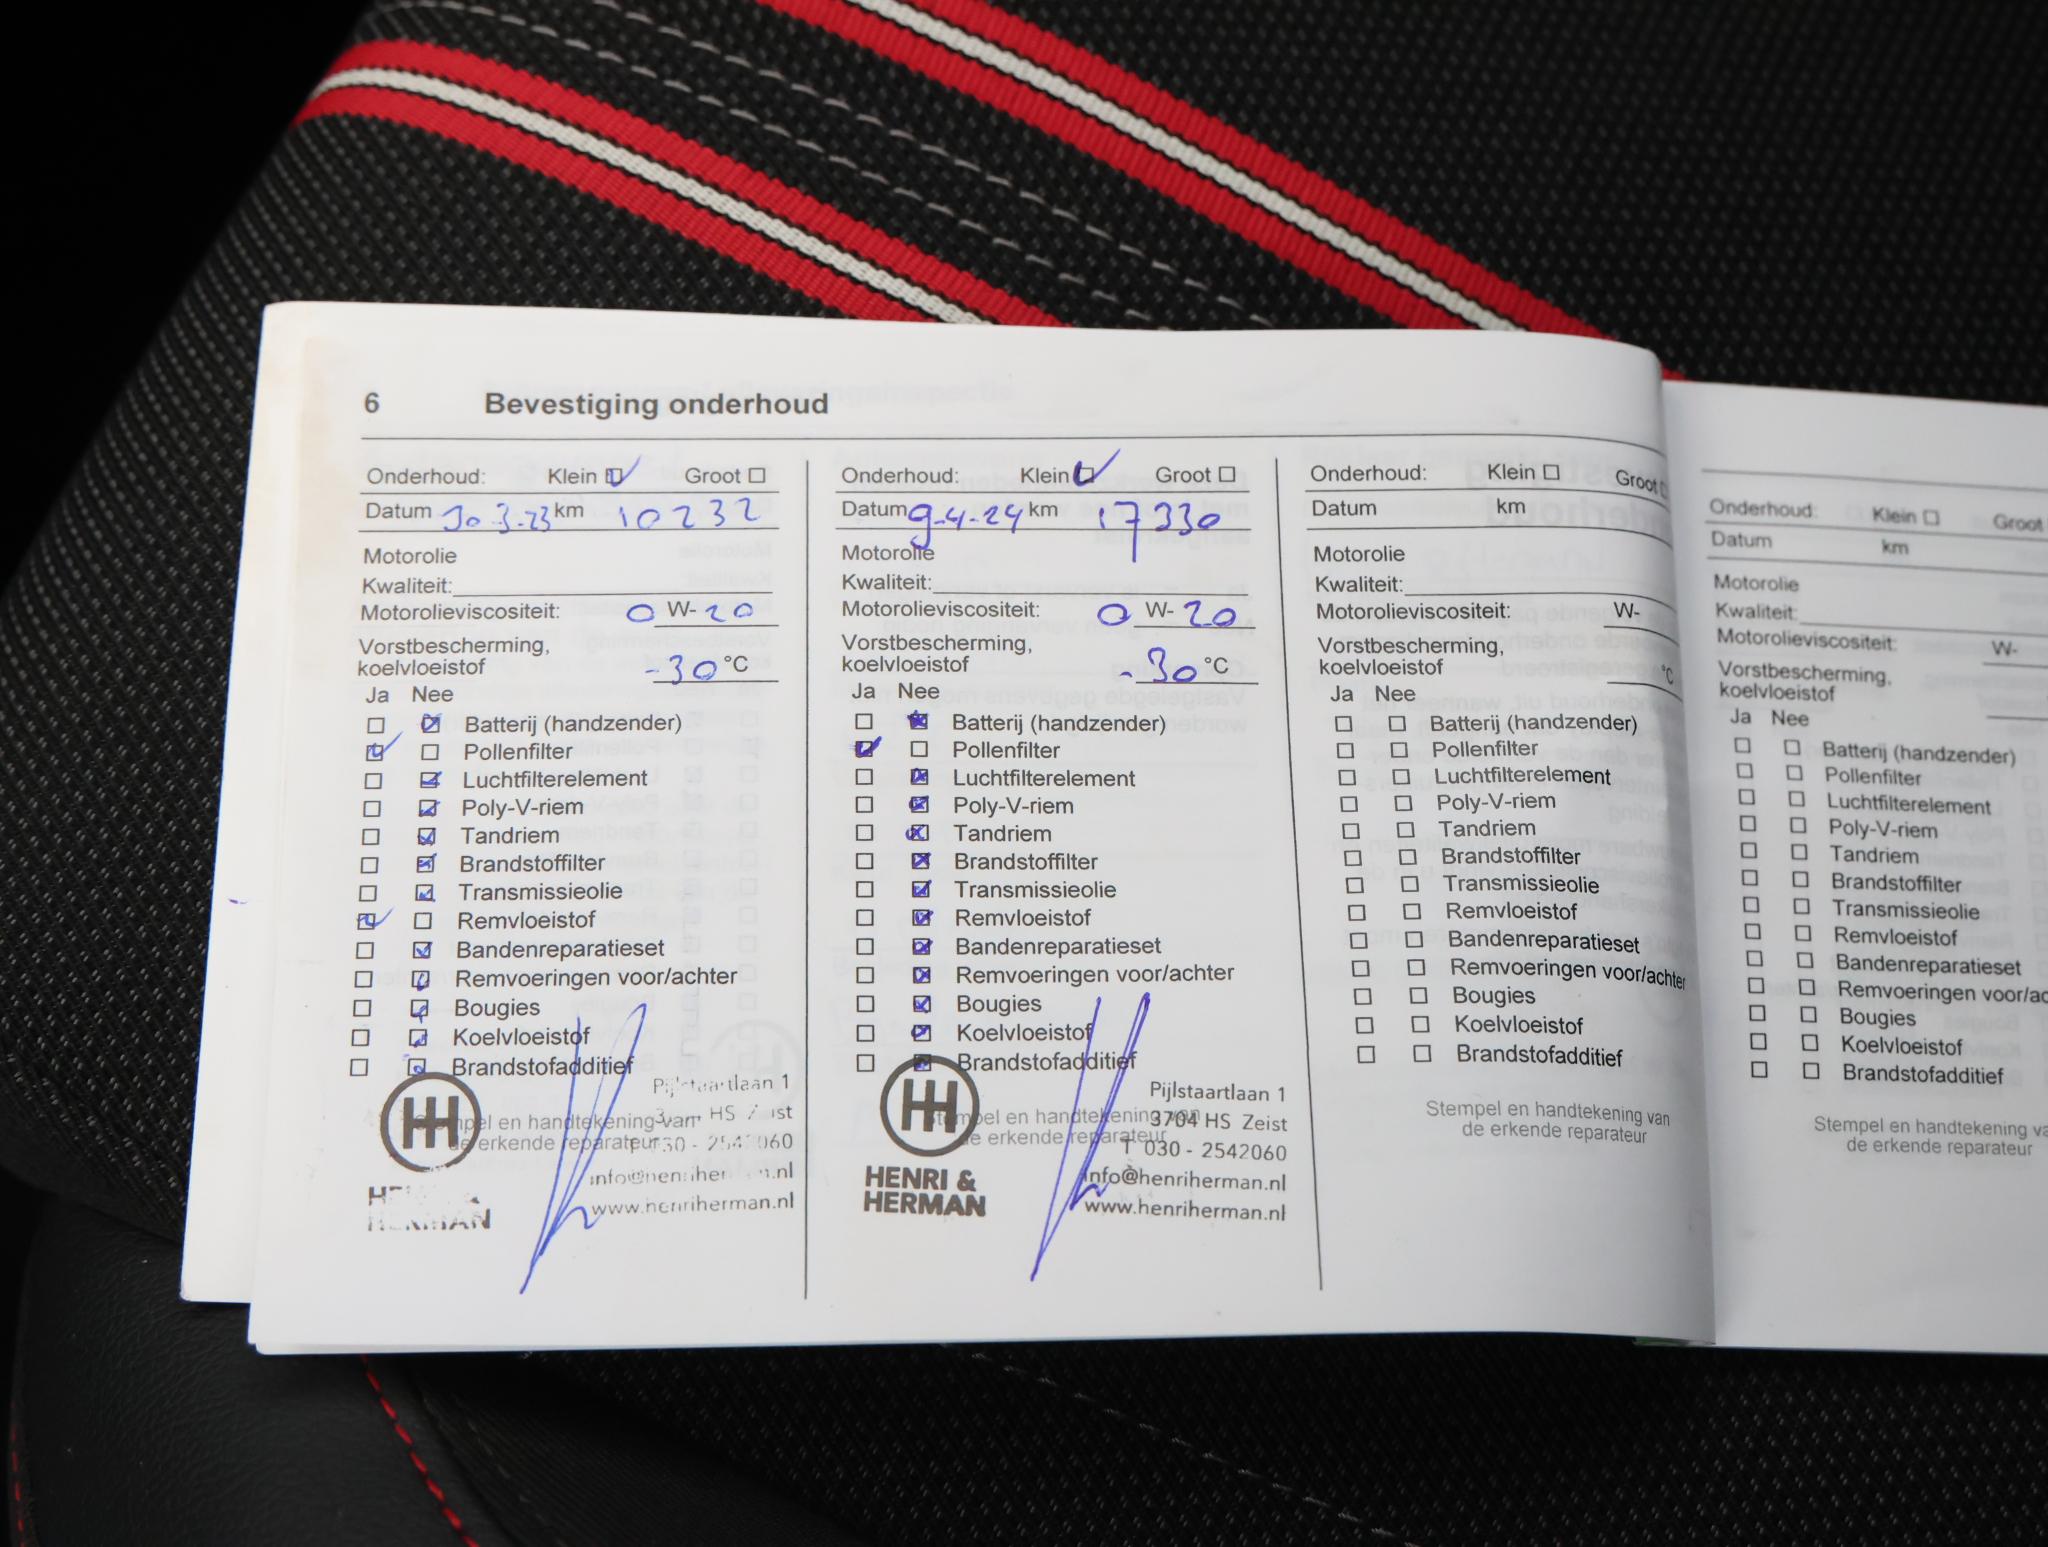 6 Bevestiging onderhoud
Onderhoud: Klein Groot
Datum 30-3-23 km 10232
Motorolie
Kwaliteit:
Motorolieviscositeit: 0 W- 20
Vorstbescherming,
koelvloeistof -30 °C
Ja Nee
Batterij (handzender)
Pollenfilter
Luchtfilterelement
Poly-V-riem
Tandriem
Brandstoffilter
Transmissieolie
Remvloeistof
Bandenreparatieset
Remvoeringen voor/achter
Bougies
Koelvloeistof
Brandstofadditief
Stempel en handtekening van
de erkende reparateur
HENRI &
HERMAN
Pijlstaartlaan 1
HS Zeist
T 030 - 2542060
info@henriherman.nl
www.henriherman.nl
Onderhoud: Klein Groot
Datum 9-4-24 km 17330
Motorolie
Kwaliteit:
Motorolieviscositeit: 0 W- 20
Vorstbescherming,
koelvloeistof -30 °C
Ja Nee
Batterij (handzender)
Pollenfilter
Luchtfilterelement
Poly-V-riem
Tandriem
Brandstoffilter
Transmissieolie
Remvloeistof
Bandenreparatieset
Remvoeringen voor/achter
Bougies
Koelvloeistof
Brandstofadditief
Stempel en handtekening van
de erkende reparateur
HENRI &
HERMAN
Pijlstaartlaan 1
3704 HS Zeist
T 030 - 2542060
info@henriherman.nl
www.henriherman.nl
Onderhoud: Klein Groot
Datum km
Motorolie
Kwaliteit:
Motorolieviscositeit: W-
Vorstbescherming,
koelvloeistof °C
Ja Nee
Batterij (handzender)
Pollenfilter
Luchtfilterelement
Poly-V-riem
Tandriem
Brandstoffilter
Transmissieolie
Remvloeistof
Bandenreparatieset
Remvoeringen voor/achter
Bougies
Koelvloeistof
Brandstofadditief
Stempel en handtekening van
de erkende reparateur
Onderhoud: Klein Groot
Datum km
Motorolie
Kwaliteit:
Motorolieviscositeit: W-
Vorstbescherming,
koelvloeistof
Ja Nee
Batterij (handzender)
Pollenfilter
Luchtfilterelement
Poly-V-riem
Tandriem
Brandstoffilter
Transmissieolie
Remvloeistof
Bandenreparatieset
Remvoeringen voor/ac
Bougies
Koelvloeistof
Brandstofadditief
Stempel en handtekening va
de erkende reparateur